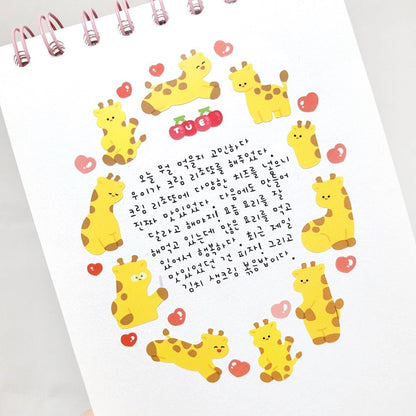 TUE
오늘 뭐 먹을지 고민하다
우이가 크림 리조또를 해주었다.
크림 리조또에 다양한 치즈를 넣으니
진짜 맛있었다. 다음에도 만들어
달라고 해야지! 요즘 요리를 잘
해먹고 있는데 많은 요리를 먹고
있어서 행복하다. 최근 제일
맛있었던 건 피자! 그리고
김치 생크림 볶음밥이다.